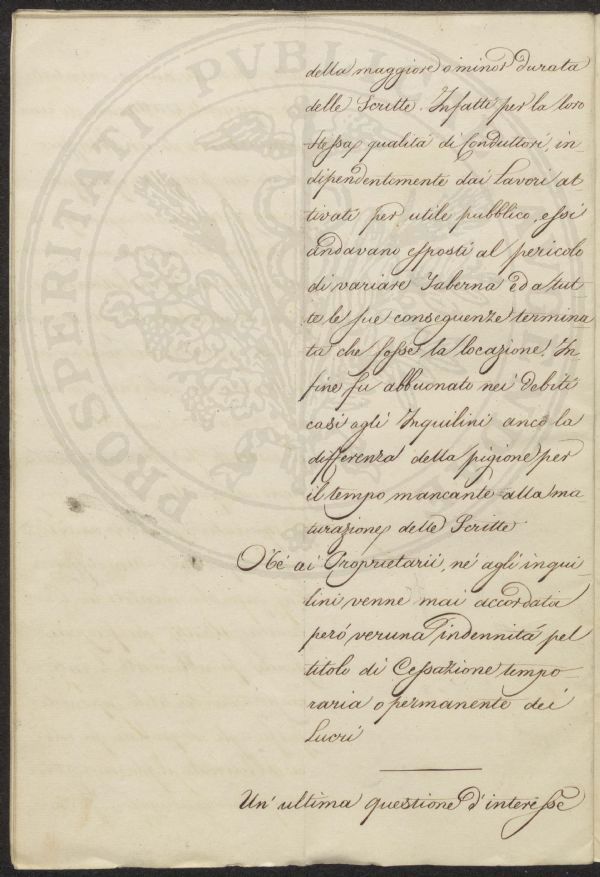 della maggiore o minor durata
delle Scritte. Infatti per la loro
stessa qualità di Conduttori, in-
dipendentemente dai Lavori at
tivati per utile pubblico, essi
andavano esposti al pericolo
di variare Taberna ed a tut-
te le sue conseguenze termina
ta che fosse la locazione. In
fine fu abbuonato nei debiti
casi agli Inquilini anco la
differenza della pigione per
il tempo mancante alla ma-
turazione delle Scritte.
Né ai Proprietarii, né agli inqui-
lini venne mai accordata
però veruna indennità pel
titolo di Cessazione tempo-
raria o permanente dei
Lucri
Un' ultima questione d'interesse
PROSPERITATI PVBLIC